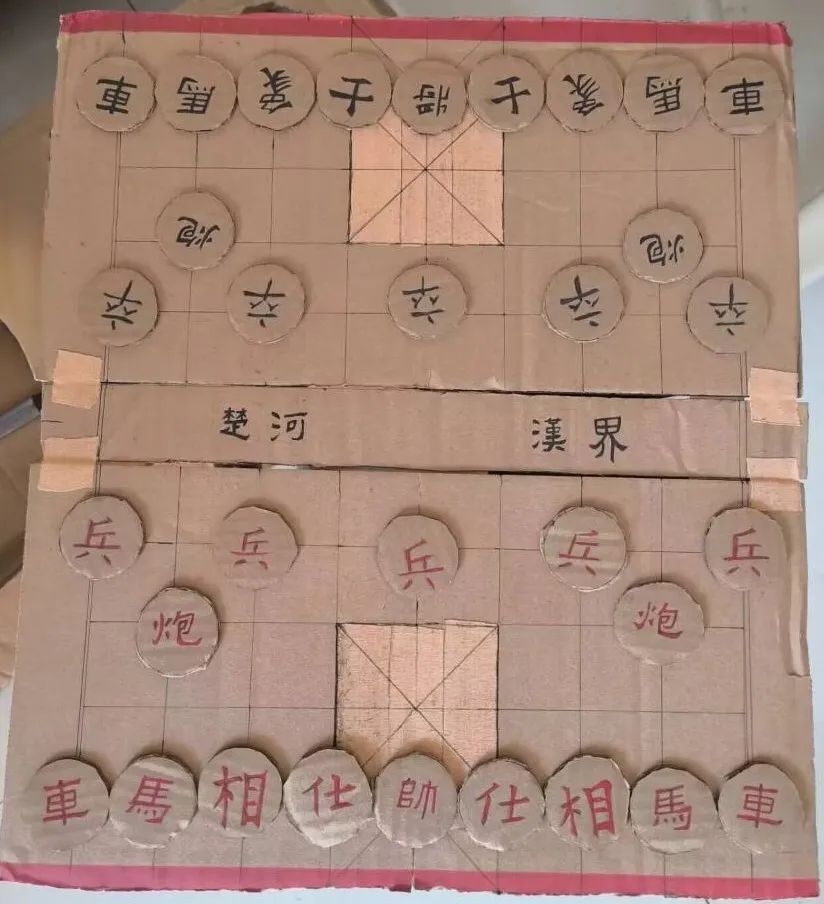 車 馬 象 士 將 士 象 馬 車
炮 炮
卒 卒 卒 卒 卒
楚河 漢界
兵 兵 兵 兵 兵
炮 炮
車 馬 相 仕 帥 仕 相 馬 車